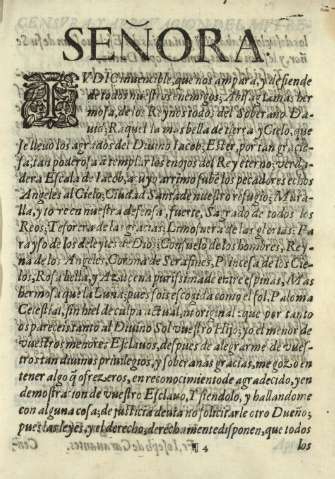 SEÑORA.
IVDIC invencible, que nos ampara, y defiende
de todos nuestros enemigos; Abisag Luna, her
mosa, de los Reynos todos del Soberano Da-
uid; Raquel la mas bella de tierra, y Cielo, que
se lleuò los agrados del Diuino Iacob; Ester, por tan gracio-
sa, tan poderosa à templar los enojos del Rey eterno; verda-
dera Escala de Iacob, à cuyo arrimo sube los pecadores echos
Angeles al Cielo; Ciudad Santa de nuestro refugio; Mura-
lla, y torre en nuestra defensa, fuerte; Sagrado de todos los
Reos; Tesorera de las gracias; Limosnera de las glorias; Pa
rayso de los deleytes de Dios; Consuelo de los hombres, Rey-
na de los Angeles, Corona de Serafines, Princesa de los Cie-
los; Rosa bella, y Azuzena purissima de entre espinas; Mas
hermosa que la Luna; pues sois escogida como el sol; Paloma
Celestial, sin hiel de culpa actual, ni original: que por tan to
os pareceis tanto al Diuino Sol vuestro Hijo; yo el menor de
vuestros menores Esclauos, despues de alegrarme de vues-
tros tan diuinos priuilegios, y soberanas gracias, me gozo en
tener algo q̃ ofrezeros, en reconocimiento de agradecido, y en
demostracion de vuestro Esclauo, Y siendolo, y hallandome
con alguna cosa; de justicia deuia no solicitarle otro Dueño;
pues las leyes, y el derecho, derechamente disponen, que todos
¶ 4 los